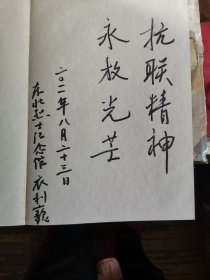 抗联精神
永放光芒
二〇二一年八月二十三日
东北烈士纪念馆 衣利巍